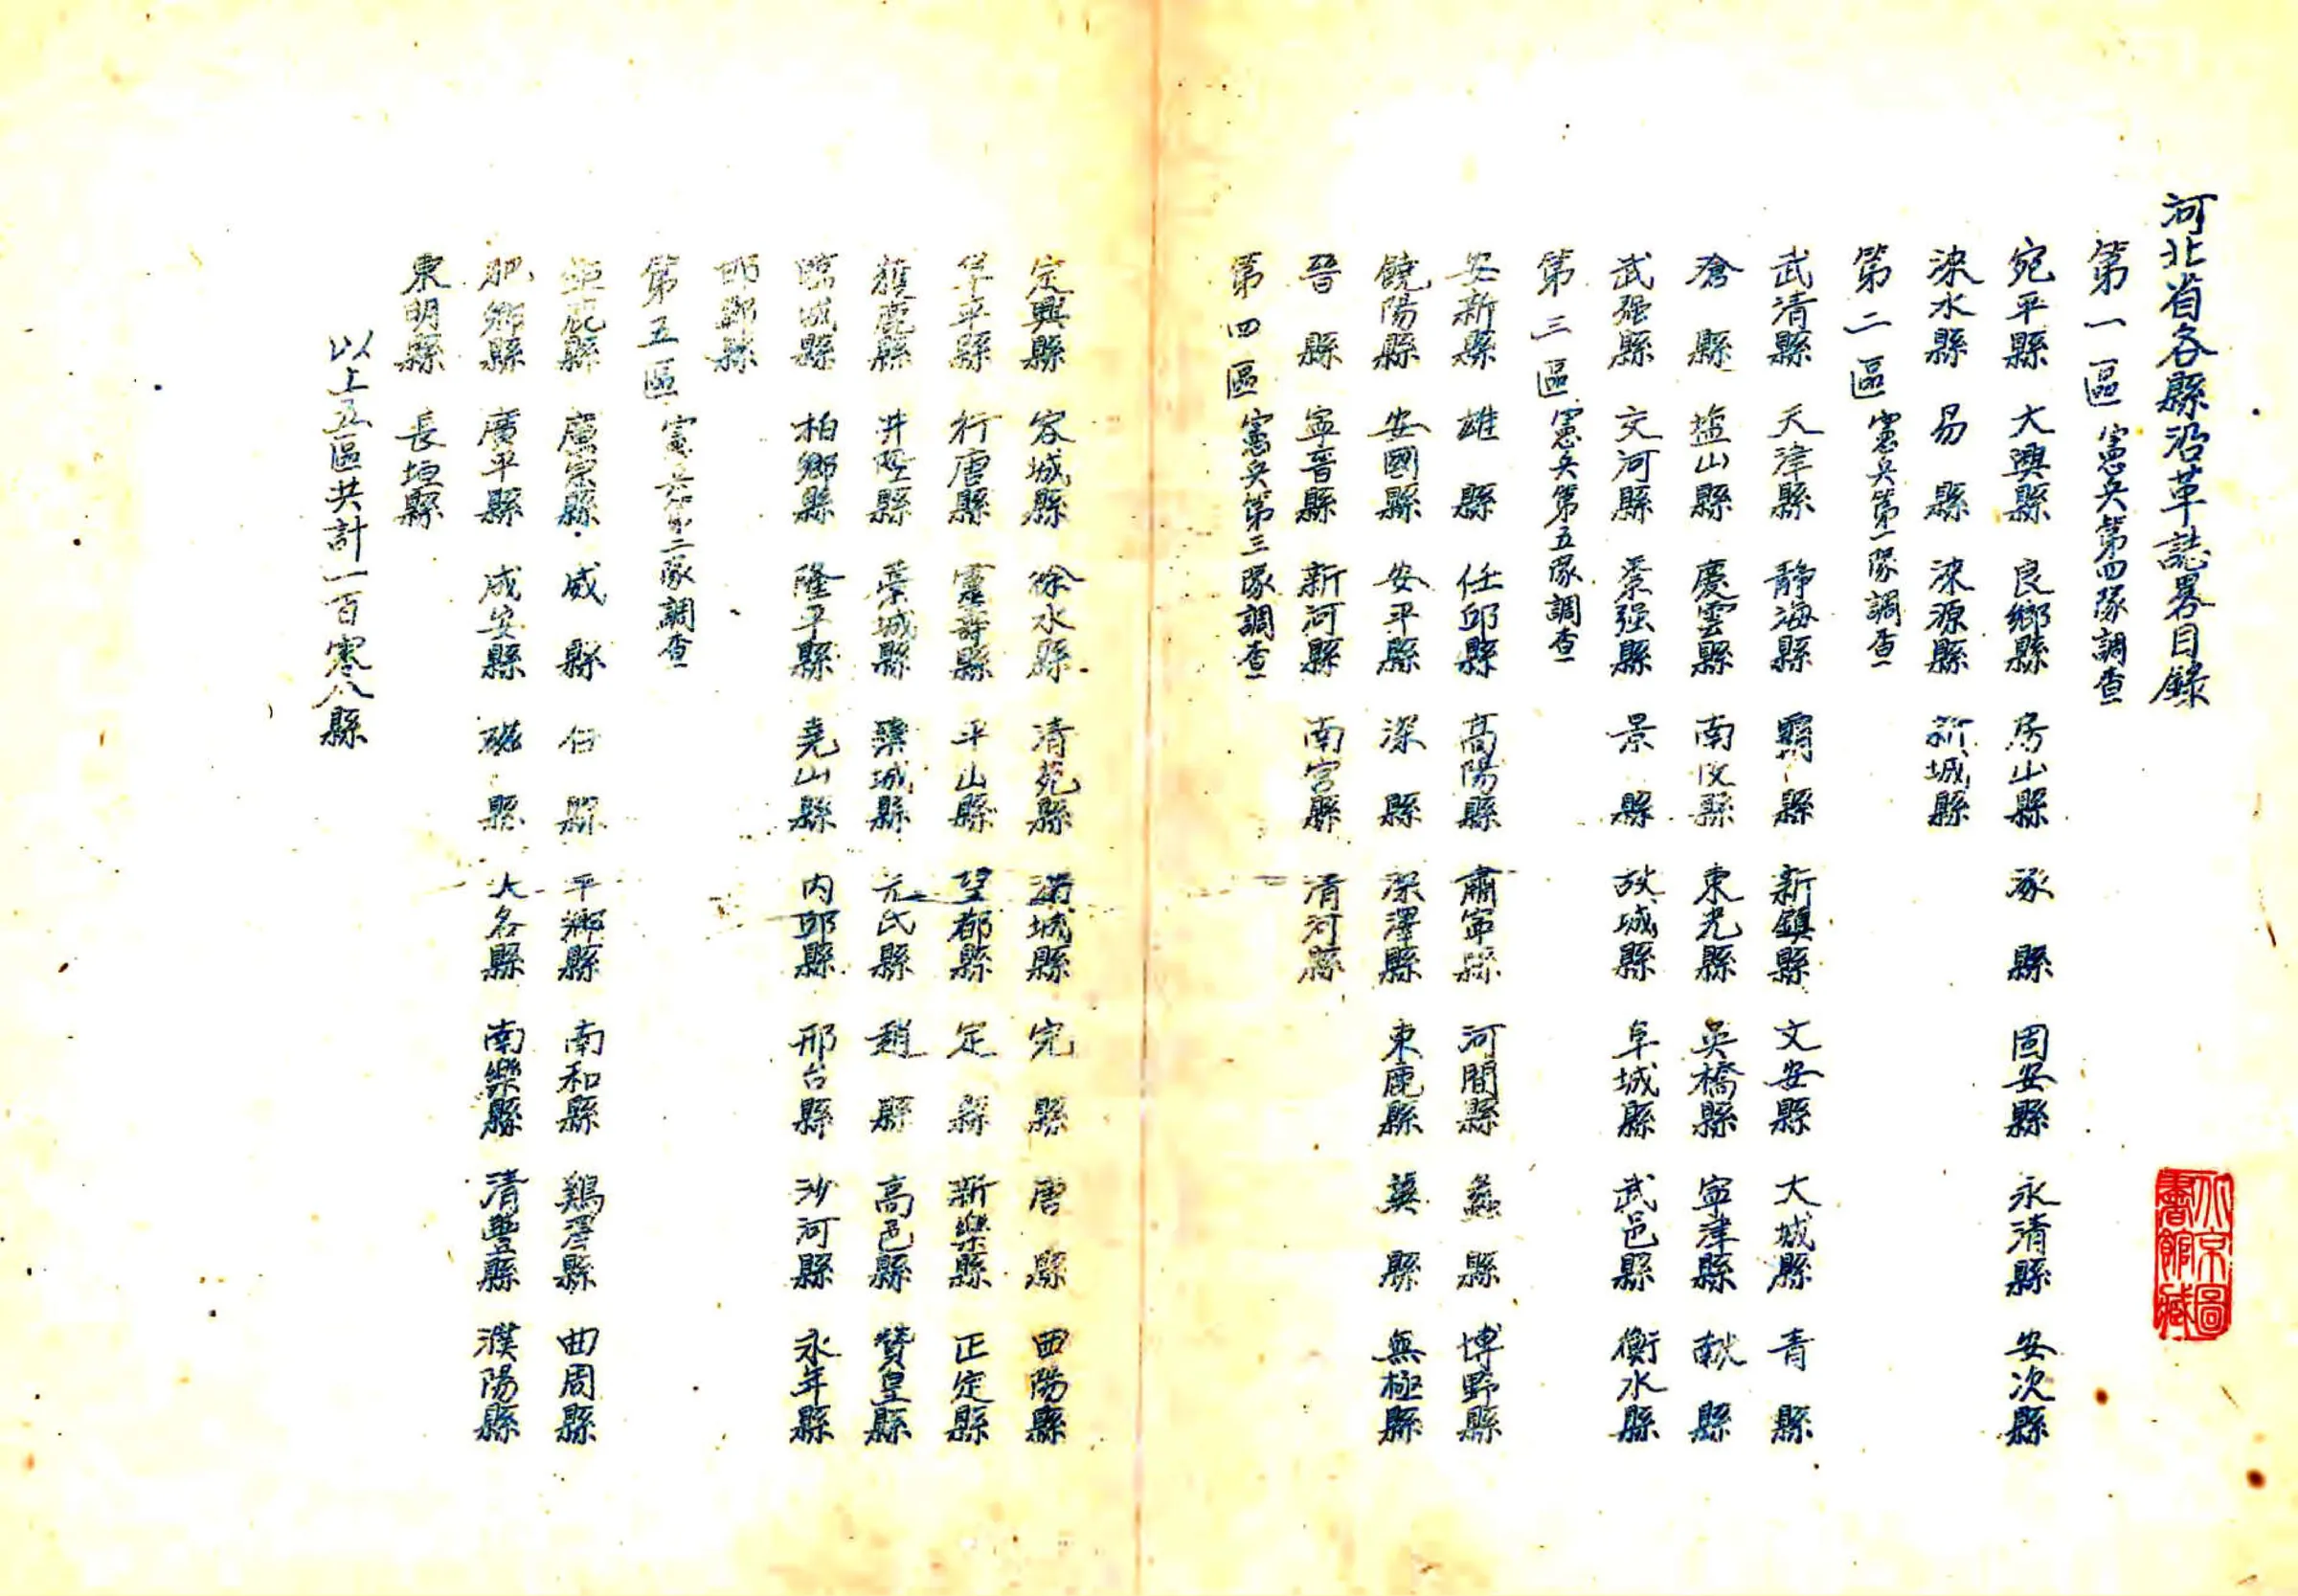 河北省各縣沿革誌畧目錄
第一區 憲兵第四隊調查
宛平縣 大興縣 良鄉縣 房山縣 涿縣 固安縣 永清縣 安次縣
淶水縣 易縣 淶源縣 新城縣
第二區 憲兵第一隊調查
武清縣 天津縣 靜海縣 霸縣 新鎮縣 文安縣 大城縣 青縣
滄縣 塩山縣 慶雲縣 南皮縣 東光縣 吳橋縣 寧津縣 献縣
武强縣 交河縣 棗强縣 景縣 故城縣 阜城縣 武邑縣 衡水縣
第三區 憲兵第五隊調查
安新縣 雄縣 任邱縣 高陽縣 肅寧縣 河間縣 蠡縣 博野縣
饒陽縣 安國縣 安平縣 深縣 深澤縣 束鹿縣 冀縣 無極縣
晉縣 寧晉縣 新河縣 南宮縣 清河縣
第四區 憲兵第三隊調查
定興縣 容城縣 徐水縣 清苑縣 滿城縣 完縣 唐縣 曲陽縣
阜平縣 行唐縣 靈壽縣 平山縣 望都縣 定縣 新樂縣 正定縣
獲鹿縣 井陘縣 藁城縣 欒城縣 元氏縣 趙縣 高邑縣 贊皇縣
臨城縣 柏鄉縣 隆平縣 堯山縣 內邱縣 邢台縣 沙河縣 永年縣
邯鄲縣
第五區 憲兵第二隊調查
鉅鹿縣 廣宗縣 威縣 任縣 平鄉縣 南和縣 鷄澤縣 曲周縣
肥鄉縣 廣平縣 成安縣 磁縣 大名縣 南樂縣 清豐縣 濮陽縣
東明縣 長垣縣
以上五區共計一百零八縣
北京圖
書館藏